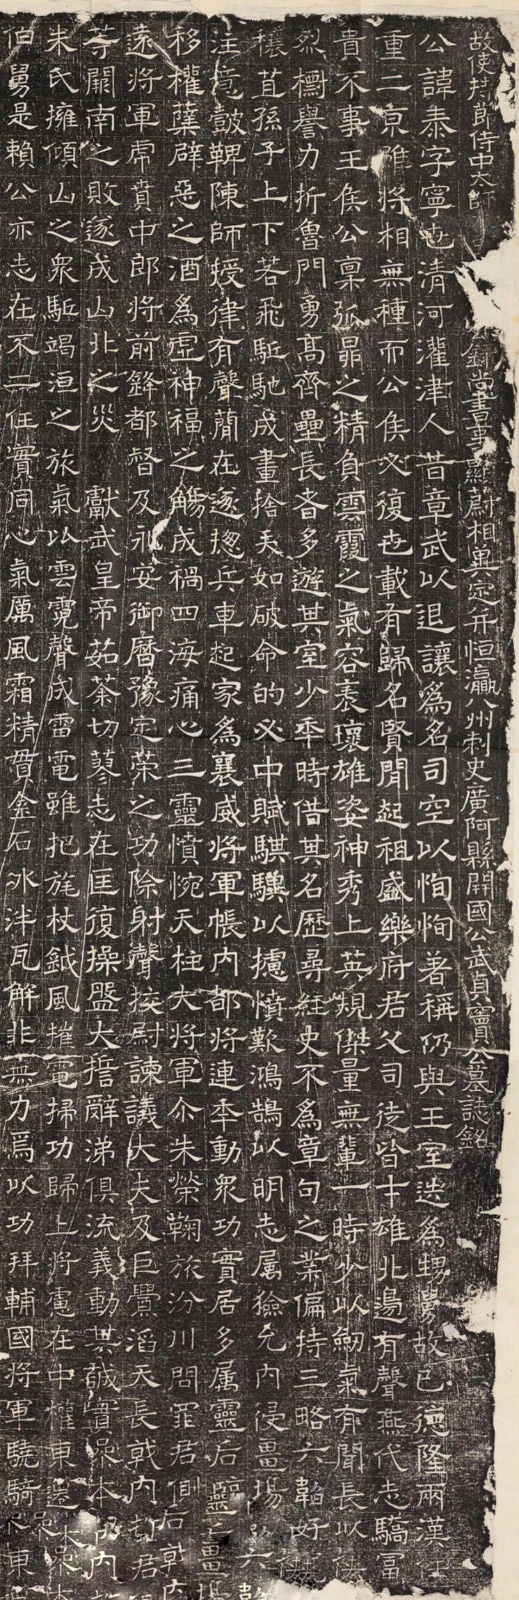 故使持節侍中太師　錄尚書事顯蔚相冀定并恒瀛八州刺史廣阿縣開國公武貞竇公墓誌銘
公諱泰字寧世清河灌津人昔章武以退讓為名司空以恂恂著稱仍與王室迭為甥舅故已德隆兩漢任
重二京雖將相無種而公侯必復世載有歸名賢間起祖盛樂府君父司徒皆才雄北邊有聲燕代志驕富
貴不事王侯公稟弧昴之精負雲霞之氣容表瓌雄姿神秀上英規傑量無輩一時少以劒氣有聞長以俠
烈標譽力折魯門勇高齊壘長者多遊其室少年時借其名歷尋經史不為章句之業偏持三略六韜好
穰苴孫子上下若飛馳驅成畫捨矢如破命的必中賦騏驥以攄憤歎鴻鵠以明志属獫允內侵畺場
注意鼓鞞陳師授律有聲蕳在遂揔兵車起家為襄威將軍帳內都將連年動衆功實居多属靈后
移權蘖辟惡之酒為虛神福之觴成禍四海痛心三靈憤惋天柱大將軍尒朱榮鞠旅汾川問罪君側
遠將軍虎賁中郎將前鋒都督及永安御曆豫定榮之功除射聲挍尉諫議大夫及巨釁滔天長戟內
等闕南之敗遂成山北之災　獻武皇帝茹荼切蓼志在匡復操盤大誓辭涕俱流義動其誠
朱氏擁傾山之衆駈竭洹之旅氣以雲霓聲成雷電雖把旄杖鉞風摧電掃功歸上將慮在中權東
伯舅是賴公亦志在不二任實同心氣厲風霜精貫金石冰泮瓦解非無力焉以功拜輔國將軍驍騎